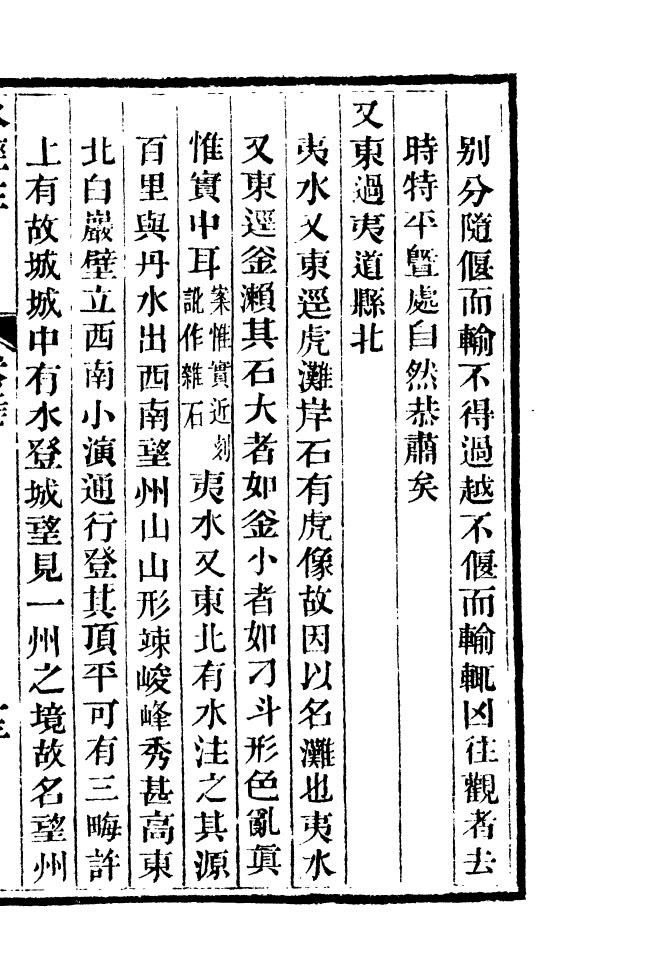 别分隨偃而輸不得過越不偃而輸輒凶往觀者去
時特平曁處自然恭肅矣
又東過夷道縣北
夷水又東逕虎灘岸石有虎像故因以名灘也夷水
又東逕釜瀨其石大者如釜小者如刁斗形色亂眞
惟實中耳案惟實近刻訛作雜石夷水又東北有水注之其源
百里與丹水出西南望州山山形竦峻峰秀甚高東
北白巖壁立西南小演通行登其頂平可有三畮許
上有故城城中有水登城望見一州之境故名望州